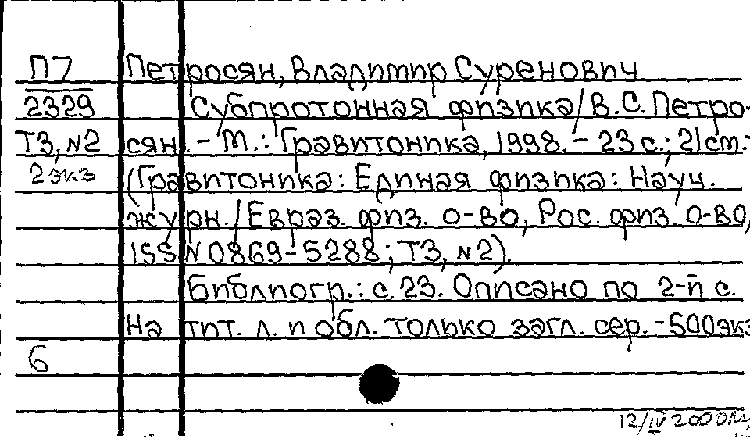 П7 Петросян, Владимир Суренович
2329 Субпротонная физика/В.С. Петро-
Т3, N2 сян. - М.: Гравитоника, 1998. - 23 с.; 21 см. -
2 экз (Гравитоника: Единая физика: Науч.
журн./Евраз. физ. о-во, Рос. физ. о-во,
ISSN 0869-5288; Т3, N2).
Библиогр.: с. 23. Описано по 2-й с.
На тит. л. и обл. только загл. сер. - 500 экз
6
12/IV 2000